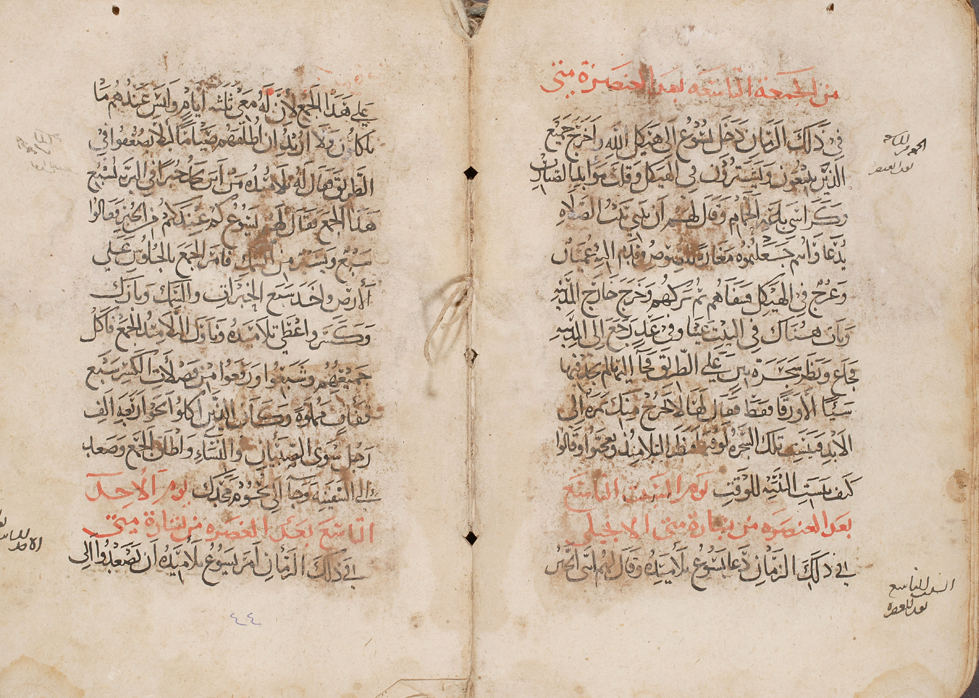 من الجمعة التاسعه بعد العنصرة متى
في ذلك الزمان دخل يسوع الى هيكل الله واخرج جميع
الذين يبيعون ويشترون في الهيكل وقلب موايد الصيارف
وكراسي باعة الحمام وقال لهم ان بيتي بيت الصلاه
يدعا وانتم جعلتموه مغارة للصوص وقدم اليه عميان
وعرج في الهيكل فشفاهم ثم تركهم وخرج خارج المدينه
وبات هناك في البيت عنيا وفي غد رجع الى المدينه
فجاع ونظر شجرة تين على الطريق فجا اليها فلم يجد فيها
شيا الا ورقا فقط فقال لها لا تخرج منك ثمرة الى
الابد فيبست تلك الشجره لوقتها فنظر التلاميذ وعجبوا وقالوا
كيف يبست التينه للوقت يوم السبت التاسع
بعد العنصره من بشارة متى الانجيلي
في ذلك الزمان دعا يسوع تلاميذه وقال لهم انني اتحنن
الجمعة التاسعة
بعد العنصره
السبت التاسع
بعد العنصره
على هذا الجمع لان له معي ثلثه ايام وليس عندهم ما
ياكلون ولا اريد ان اطلقهم صياما ليلا يضعفوا في
الطريق فقال له تلاميذه من اين نجد خبزا في البرية يشبع
هذا الجمع فقال لهم يسوع كم عندكم من الخبز فقالوا
سبع ويسير من السمك فامر الجمع بالجلوس على
الارض واخذ سبع الخبزات والسمك وبارك
وكسر واعطى تلاميذه وناول التلاميذ الجمع فاكل
جميعهم وشبعوا ورفعوا من فضلات الكسر سبع
قفاف مملوة وكان الذين اكلوا نحو اربعة الف
رجل سوى الصبيان والنساء واطلق الجمع وصعد
الى السفينة وجا الى تخوم مجدل يوم الاحد
التاسع بعد العنصره من بشارة متى
في ذلك الزمان امر يسوع تلاميذه ان يصعدوا الى
٤٤